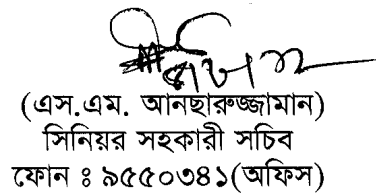 (এস.এম. আনছারুজ্জামান)
সিনিয়র সহকারী সচিব
ফোন ঃ ৯৫৫০৩৪১(অফিস)